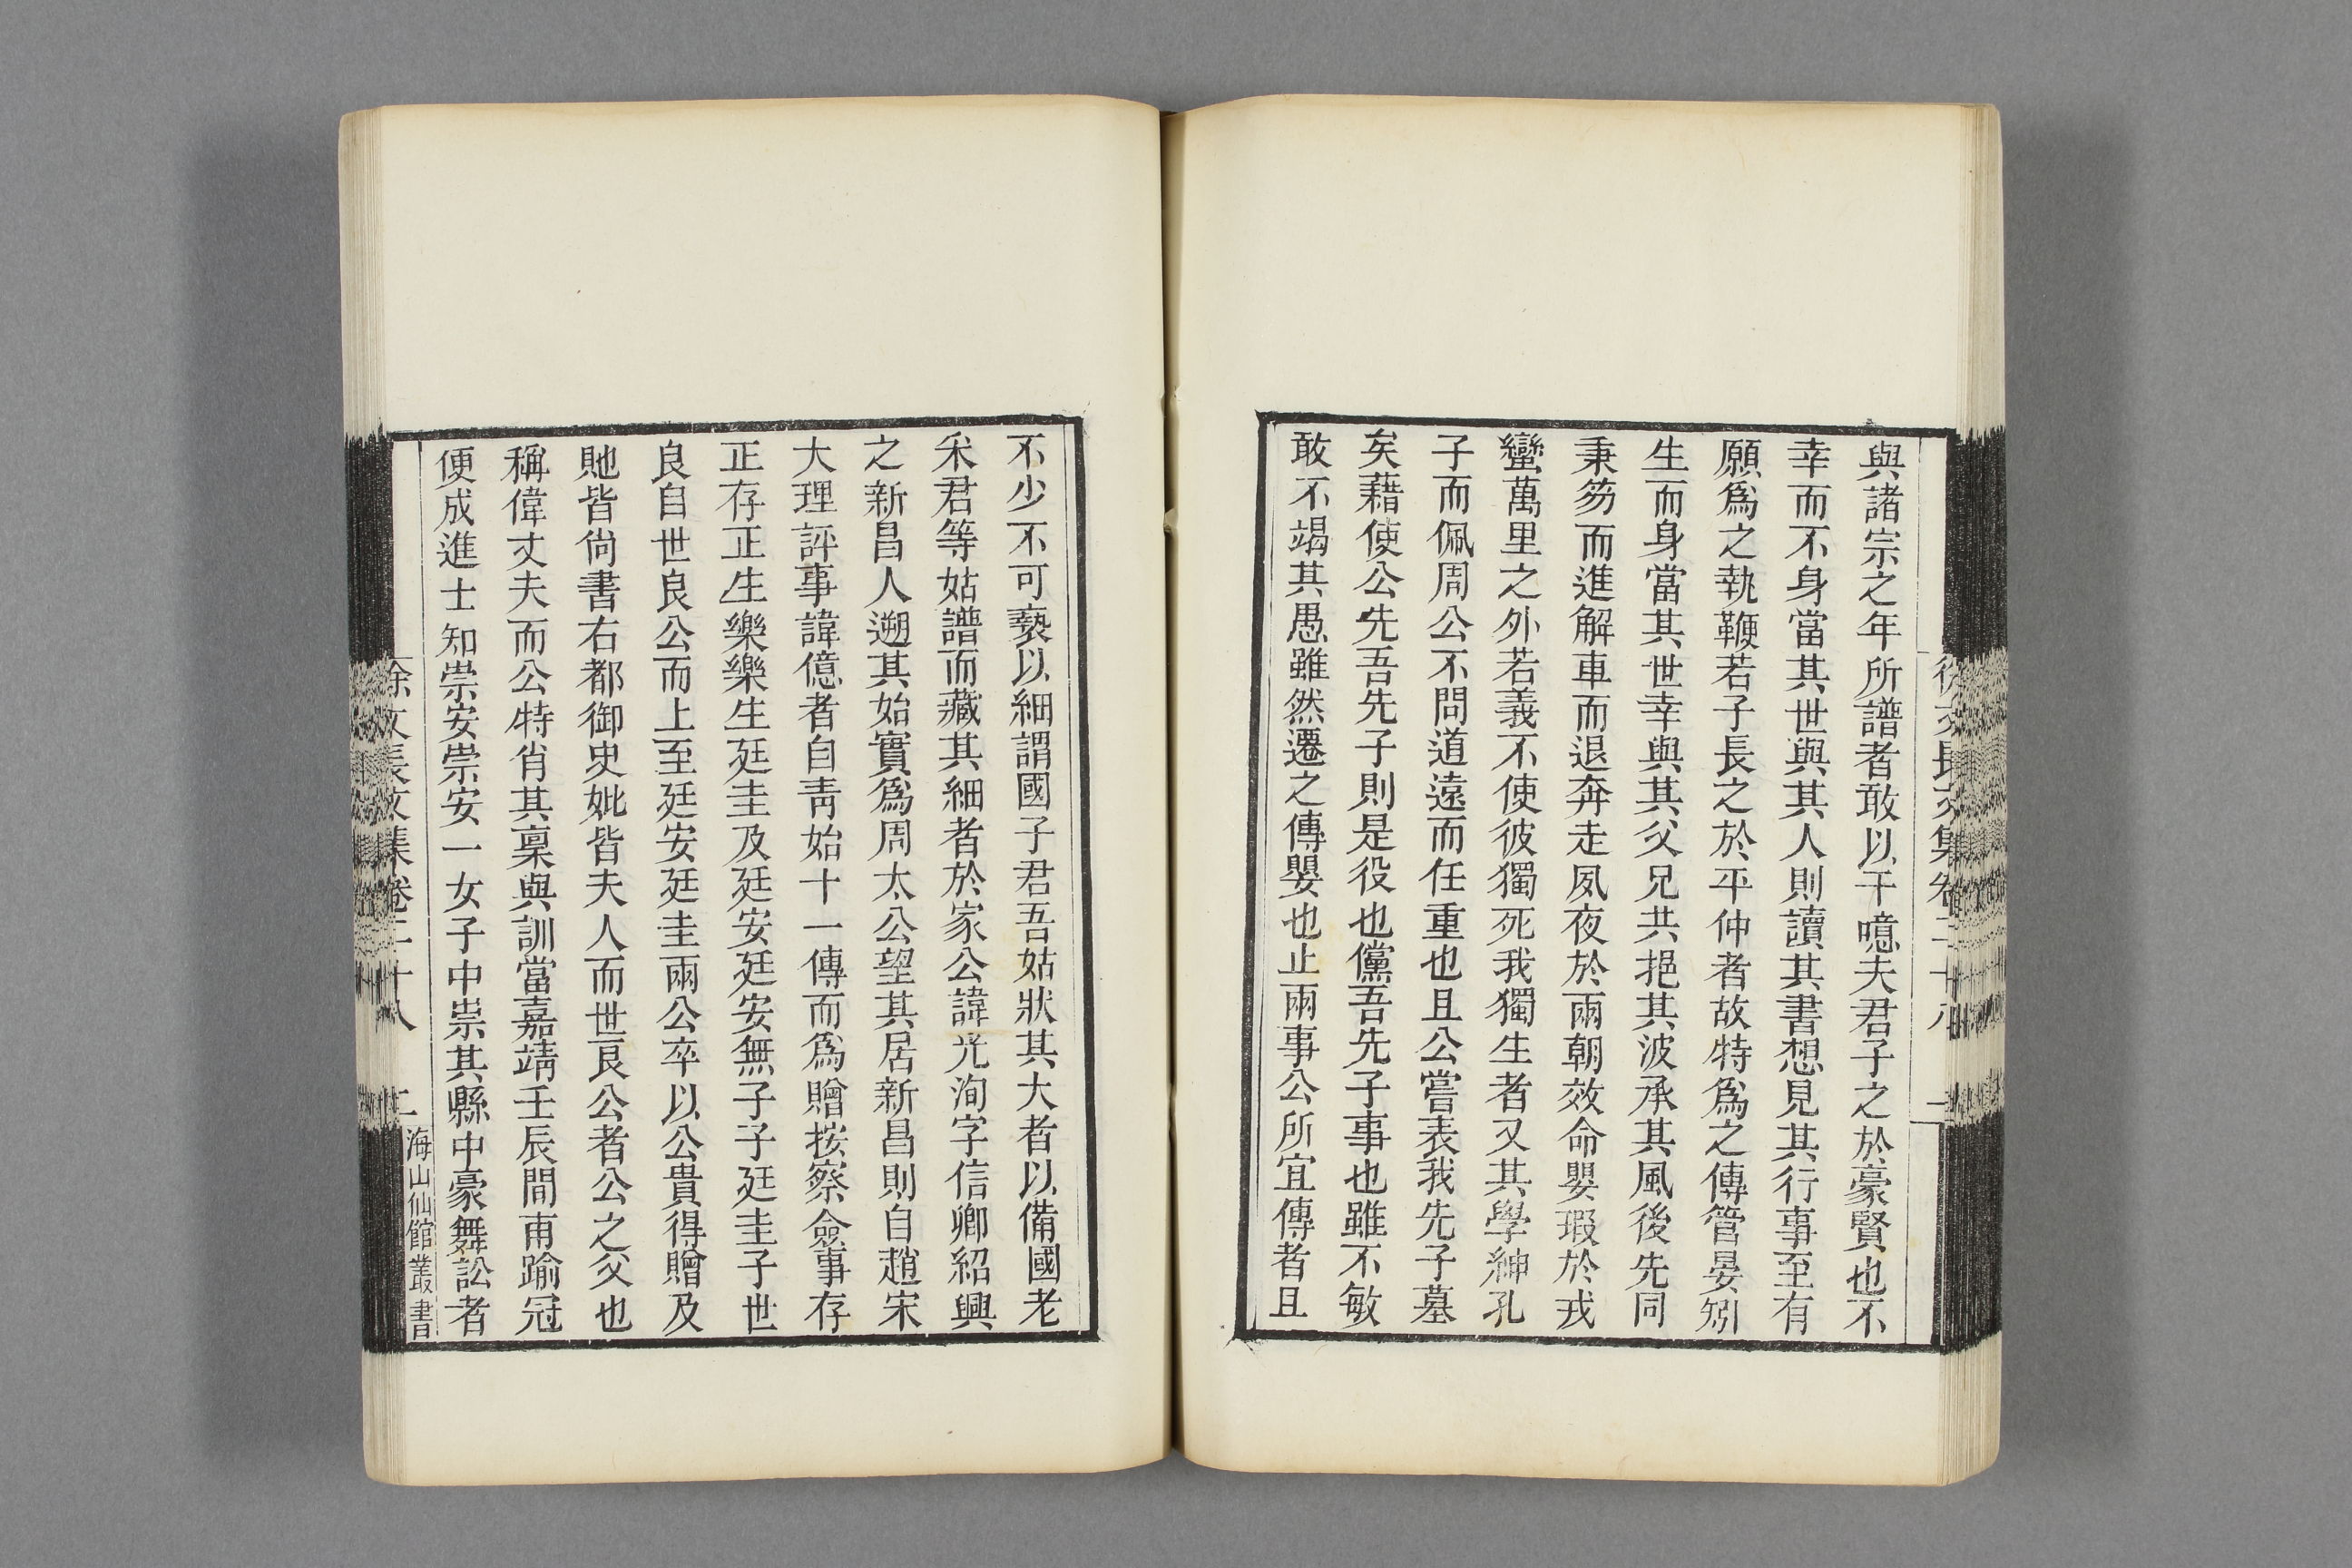 與諸宗之年所譜者敢以干噫夫君子之於豪賢也不
幸而不身當其世與其人則讀其書想見其行事至有
願爲之執鞭若子長之於平仲者故特爲之傳管晏矧
生而身當其世幸與其父兄共挹其波承其風後先同
秉笏而進解車而退奔走夙夜於兩朝效命嬰瑕於戎
蠻萬里之外若義不使彼獨死我獨生者又其學紳孔
子而佩周公不問道遠而任重也且公嘗表我先子墓
矣藉使公先吾先子則是役也儻吾先子事也雖不敏
敢不竭其愚雖然遷之傳嬰也止兩事公所宜傳者且
不少不可褻以細謂國子君吾姑狀其大者以備國老
采君等姑譜而藏其細者於家公諱光洵字信卿紹興
之新昌人遡其始實爲周太公望其居新昌則自趙宋
大理評事諱億者自靑始十一傳而爲贈按察僉事存
正存正生樂樂生廷圭及廷安廷安無子子廷圭子世
良自世良公而上至廷安廷圭兩公卒以公貴得贈及
貤皆尙書右都御史妣皆夫人而世良公者公之父也
稱偉丈夫而公特肖其稟與訓當嘉靖壬辰間甫踰冠
便成進士知崇安崇安一女子中祟其縣中豪舞訟者
徐文長文集卷二十八 二 海山仙館叢書